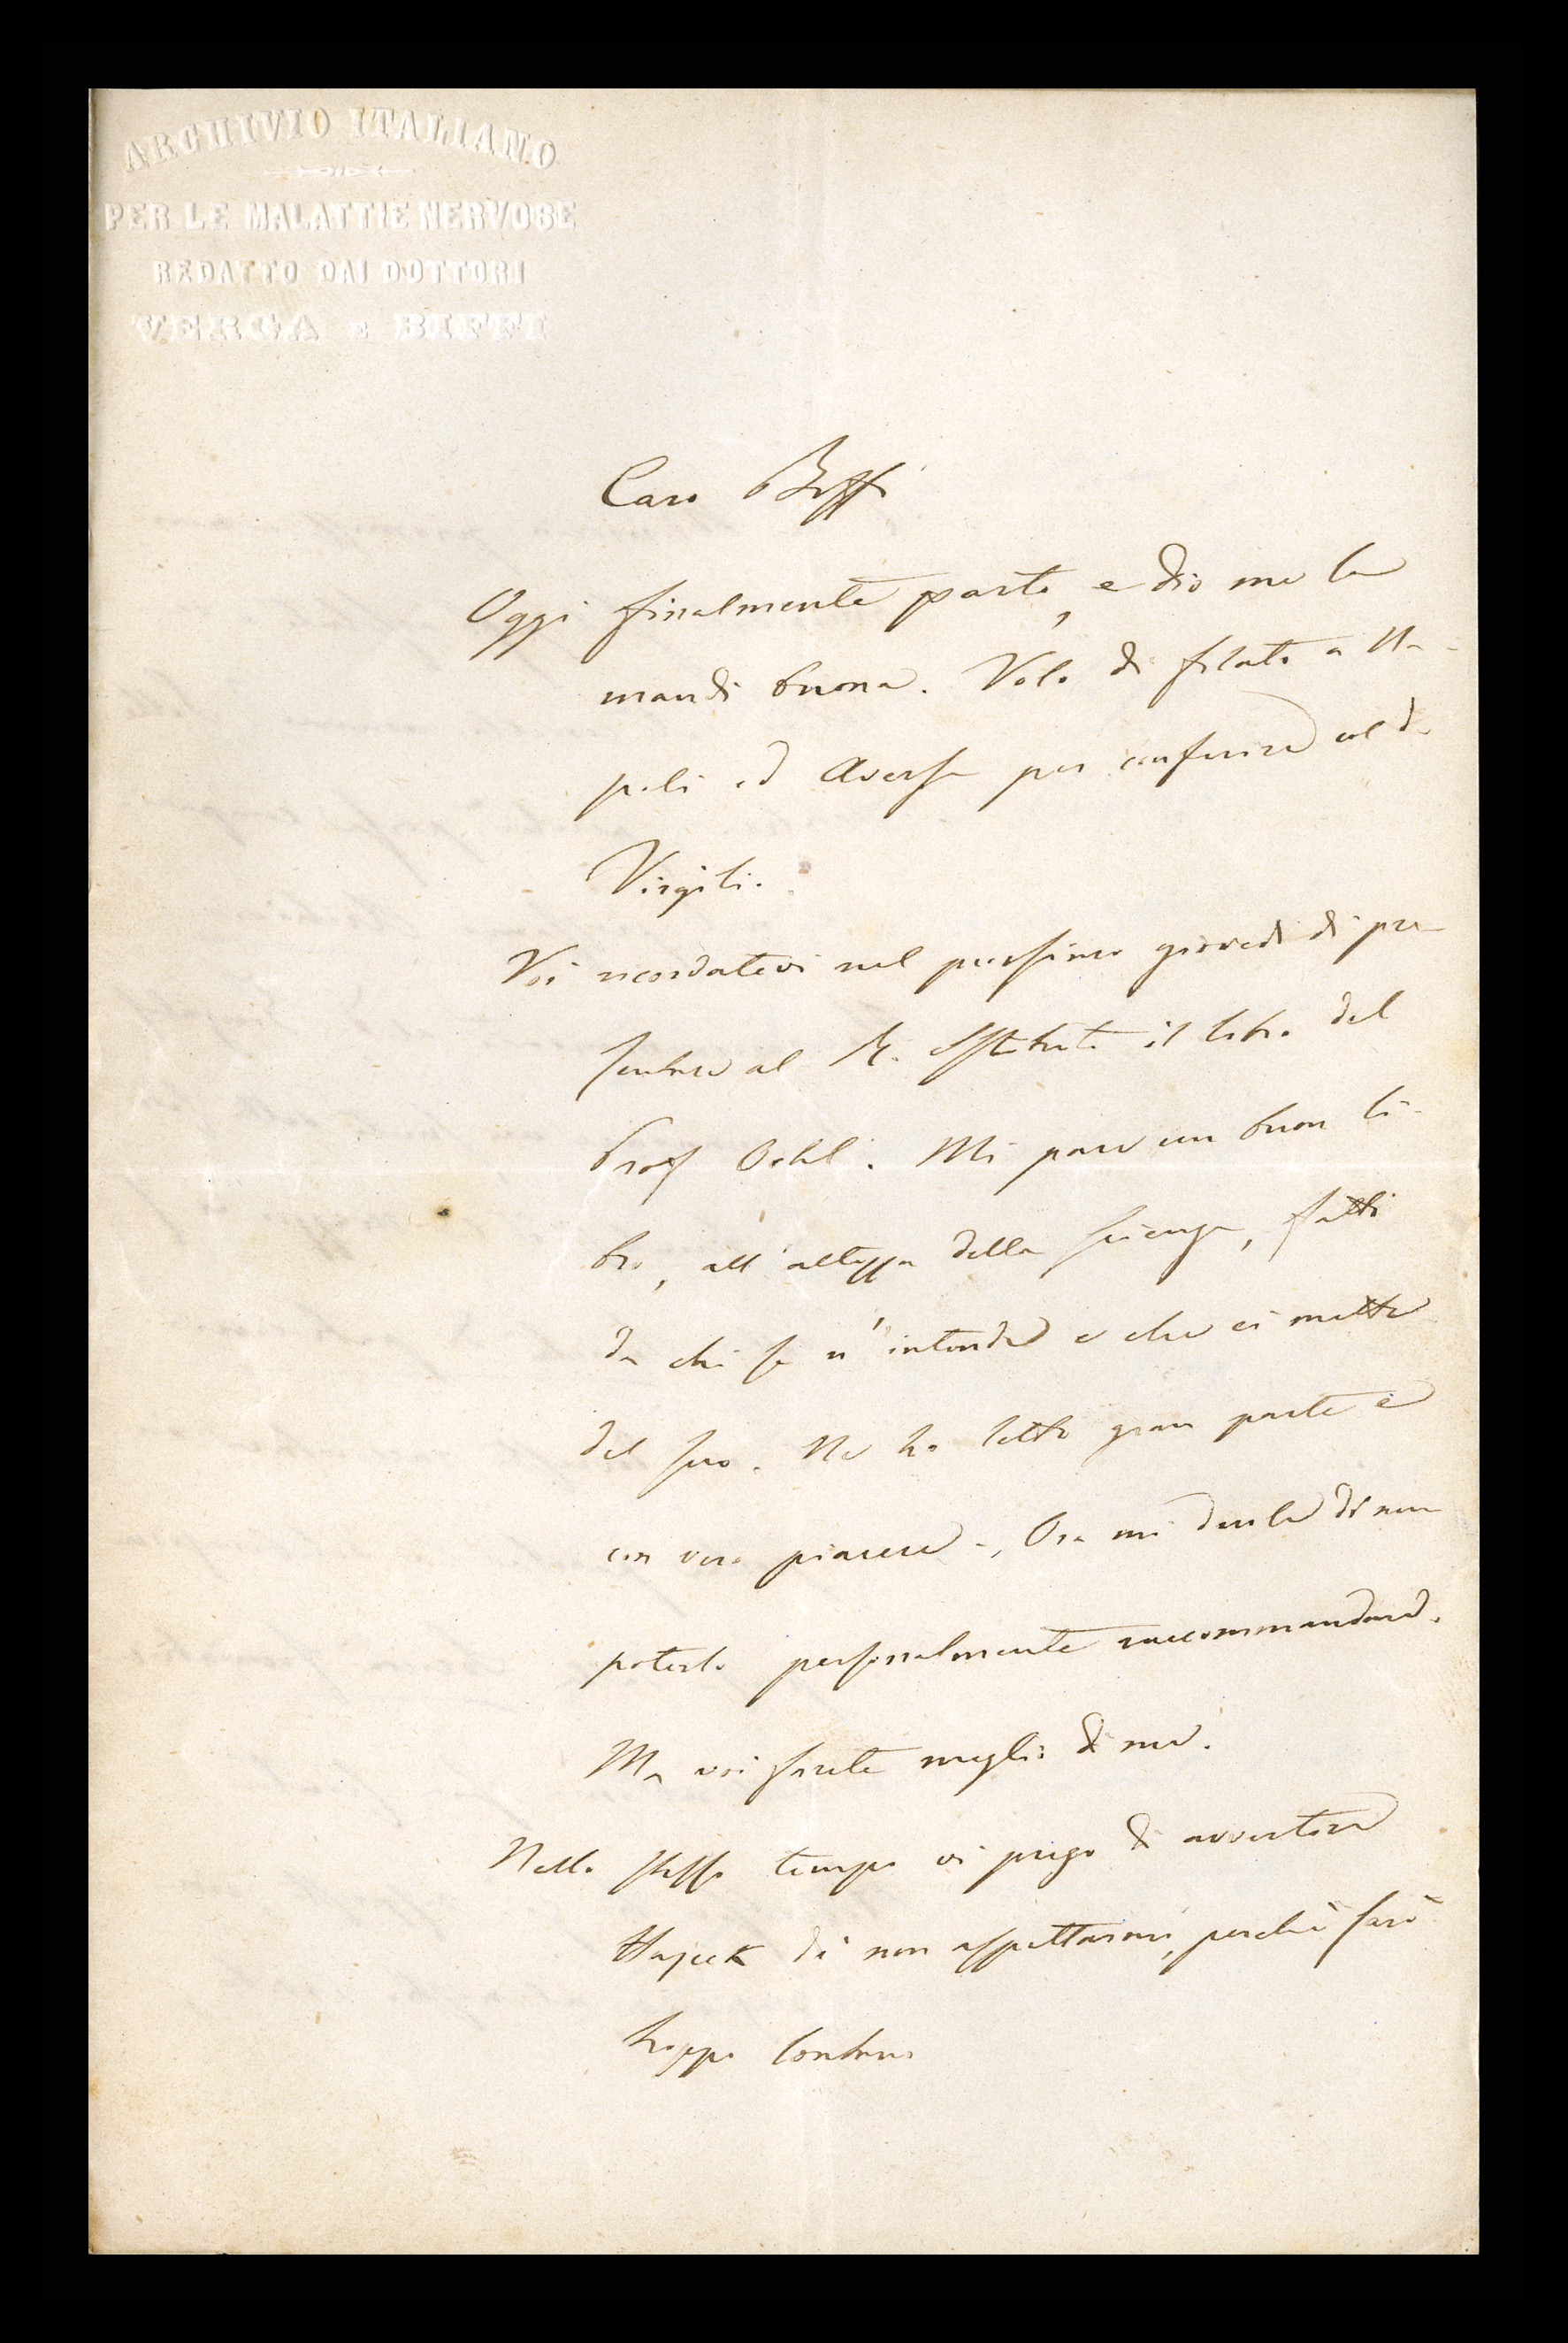 ARCHIVIO ITALIANO
PER LE MALATTIE NERVOSE
REDATTO DAI DOTTORI
VERGA E BIFFI
Caro Biffi
Oggi finalmente parto, e dio me la
mandi buona. Volo di filato a Na-
poli ed Aversa per conferire col d.
Virgili.
Voi ricordatevi nel prossimo giovedì di pre-
sentare al R. Istituto il libro del
Prof Oehl. Mi pare un buon li-
bro, all'altezza della scienza, fatto
da chi se n'intende e che ci mette
del suo. Ne ho letto gran parte e
con vero piacere. Ora mi duole di non
poterlo personalmente raccommandare.
Ma voi farete meglio di me.
Nello stesso tempo vi prego di avvertire
Hajeck di non aspettarmi, perchè sarò
troppo lontano